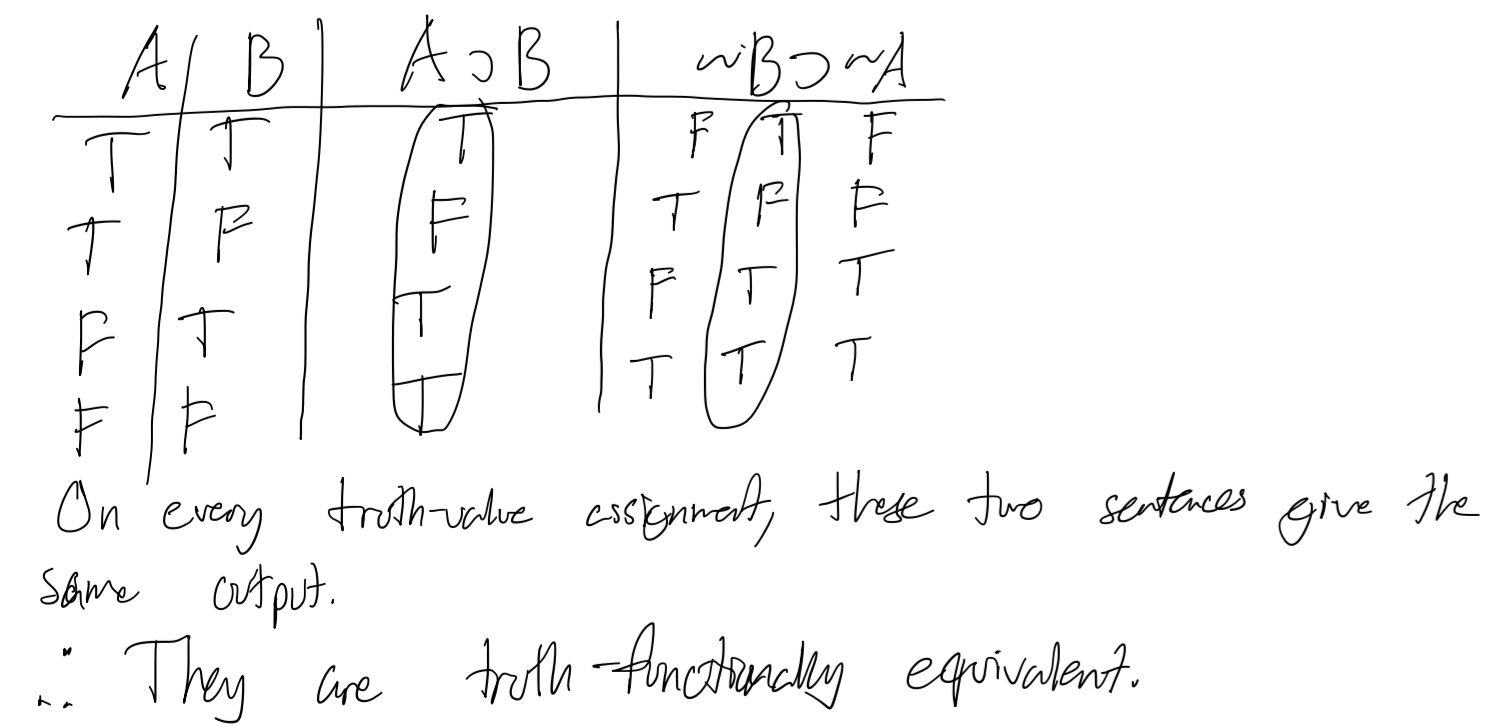 A B A ⊃ B ~B ⊃ ~A
T T T F T F
T F F T F F
F T T F T T
F F T T T T
On every truth-value assignment, these two sentences give the
same output.
∴ They are truth-functionally equivalent.